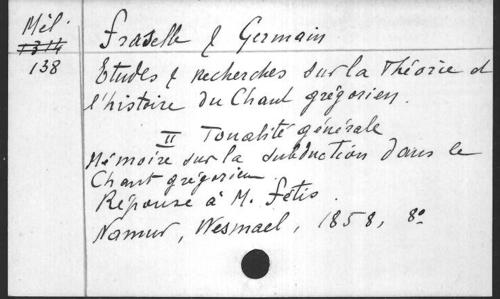 Mél.
1314
138
Fraselle & Germain
Etudes & recherches sur la Théorie et
l'histoire du Chant grégorien.
II Tonalité générale
Mémoire sur la subduction dans le
Chant grégorien
Réponse à M. Fétis.
Namur, Wesmael, 1858, 8°